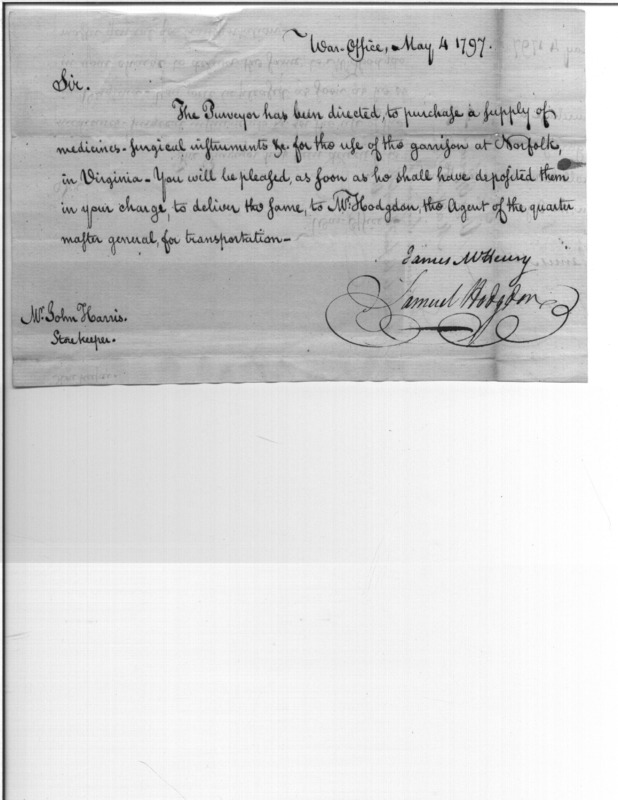 War-Office, May 4 1797.
Sir.
The Purveyor has been directed, to purchase a supply of
medicines. surgical instruments &c. for the use of the garrison at Norfolk,
in Virginia - You will be pleased, as soon as he shall have deposited them
in your charge, to deliver the same, to Mr. Hodgdon, the Agent of the quarter
master general, for transportation -
James McHenry
Samuel Hodgdon
Mr. John Harris.
Storekeeper.